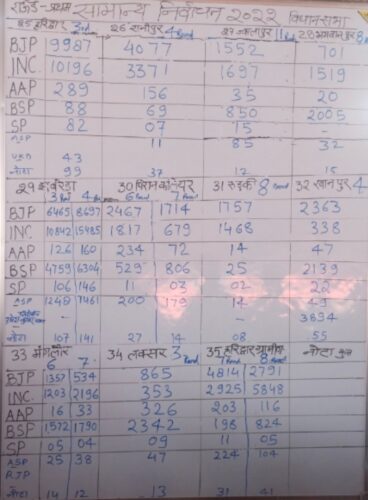 राउंड-प्रथम सामान्य निर्वाचन २०२२ विधानसभा
25 हरिद्वार 3rd 26 रानीपुर 4 Round 27 ज्वालापुर 11 Round 28 भगवानपुर 8
BJP 19987 4077 1552 701
INC 10196 3371 1697 1519
AAP 289 156 35 20
BSP 88 69 850 2005
SP 82 07 15 -
ASP 11 85 32
UKD 43
नोटा 99 37 12 15
29 झबरेड़ा 30 पिरान कलियर 31 रुड़की 8 Round 32 खानपुर 4
3 Round 4 Round 6 Round 7 Round
BJP 6465 8697 2467 1714 1757 2363
INC 10842 15485 1817 679 1468 338
AAP 126 160 234 72 14 47
BSP 4759 6304 529 806 25 2139
SP 106 146 11 03 02 22
ASP 1248 1461 200 179 14 49
- - - 3834
नोटा 107 141 27 14 08 55
33 मंगलौर 34 लक्सर 3 Round 35 हरिद्वार ग्रामीण नोटा कुल
6 7 7 Round 8 Round
BJP 1357 534 865 4814 2791
INC 1203 2196 353 2925 5848
AAP 16 33 326 203 116
BSP 1572 1790 2342 198 824
SP 05 04 09 11 05
ASP 25 38 47 224 104
RJP
नोटा 14 12 13 31 41